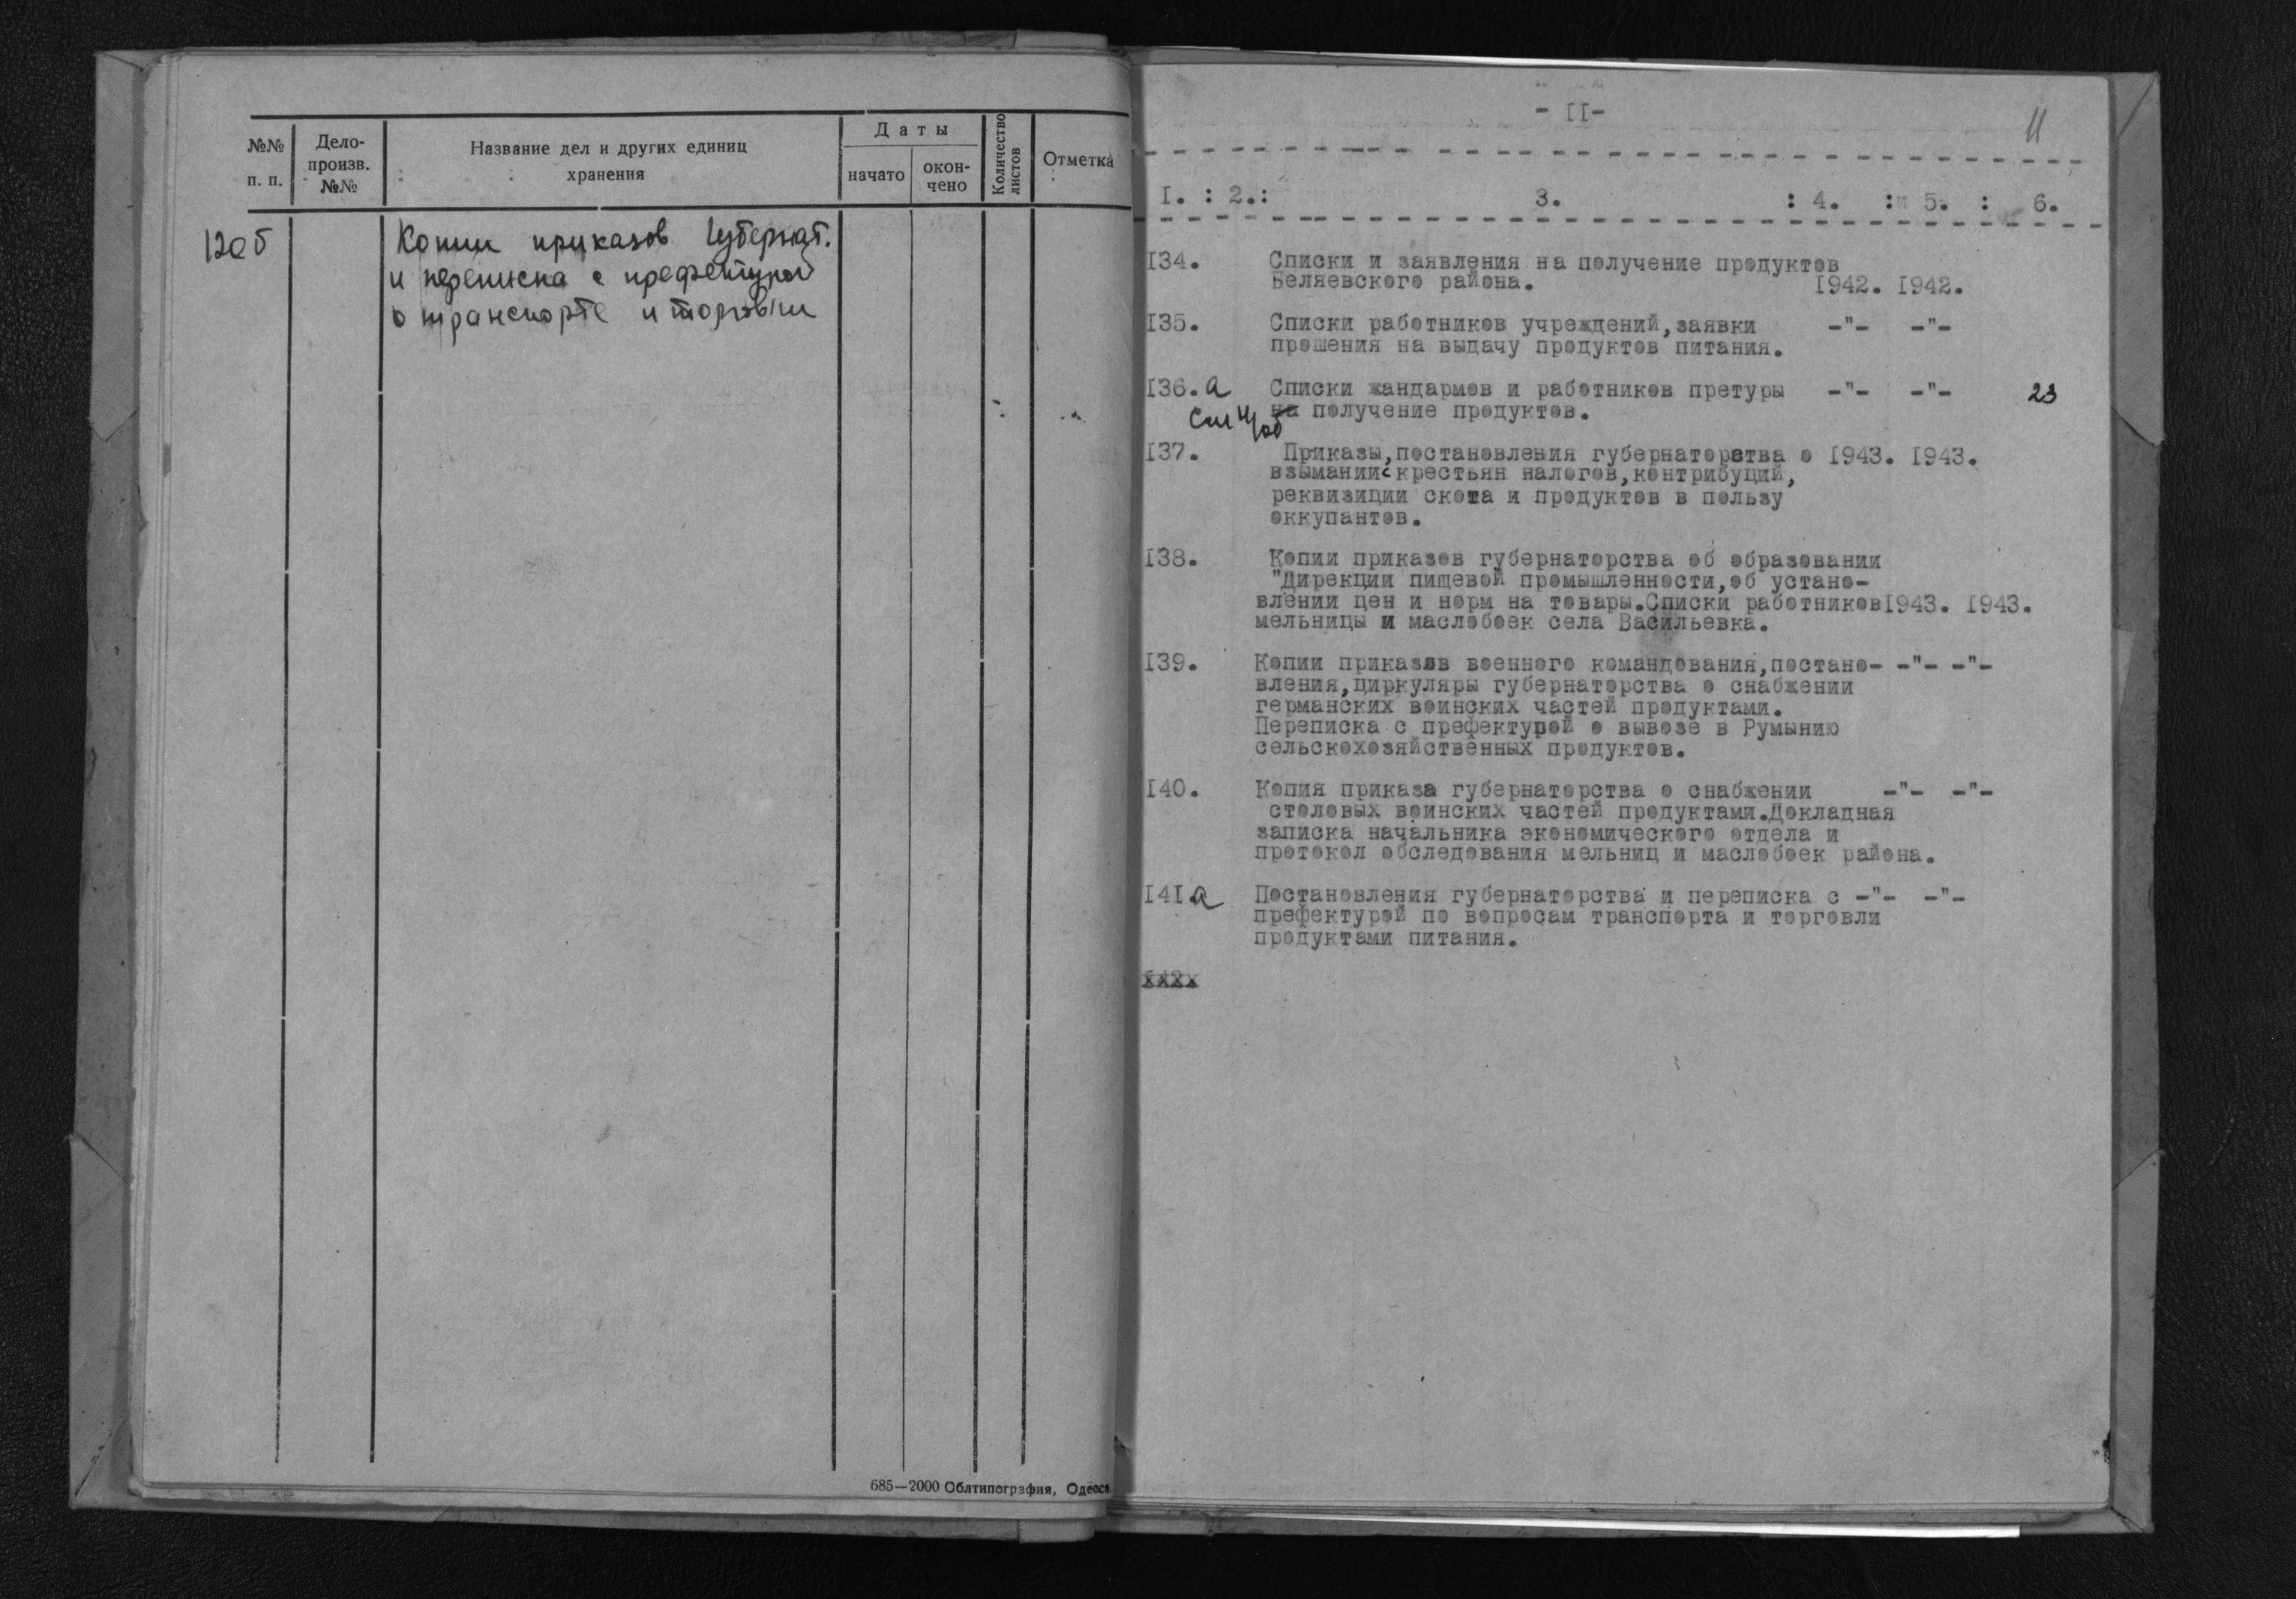 №№ п. п.
Дело-
произв.
№№
Название дел и других единиц
хранения
Даты
начато
окон-
чено
Количество
листов
Отметка
120б
Копии приказов Губернат.
и переписка с префектурой
о транспорте и торговли
685—2000 Облтипография, Одесса
- II-
11
I. : 2.: 3. : 4. : 5. : 6.
I34. Списки и заявления на получение продуктов
Беляевского района. I942. I942.
I35. Списки работников учреждений,заявки -"- -"-
прошения на выдачу продуктов питания.
I36.а Списки жандармов и работников претуры -"- -"- 23
на получение продуктов.
I37. Приказы,постановления губернаторства о I943. I943.
взымании с крестьян налогов,контрибуций,
реквизиции скота и продуктов в пользу
оккупантов.
I38. Копии приказов губернаторства об образовании
"Дирекции пищевой промышленности,об устано-
влении цен и норм на товары.Списки работниковI943. I943.
мельницы и маслобоек села Васильевка.
I39. Копии приказов военного командования,постано- -"- -"-
вления,циркуляры губернаторства о снабжении
германских воинских частей продуктами.
Переписка с префектурой о вывозе в Румынию
сельскохозяйственных продуктов.
I40. Копия приказа губернаторства о снабжении -"- -"-
столовых воинских частей продуктами.Докладная
записка начальника экономического отдела и
протокол обследования мельниц и маслобоек района.
I4I.а Постановления губернаторства и переписка с -"- -"-
префектурой по вопросам транспорта и торговли
продуктами питания.
xxxx